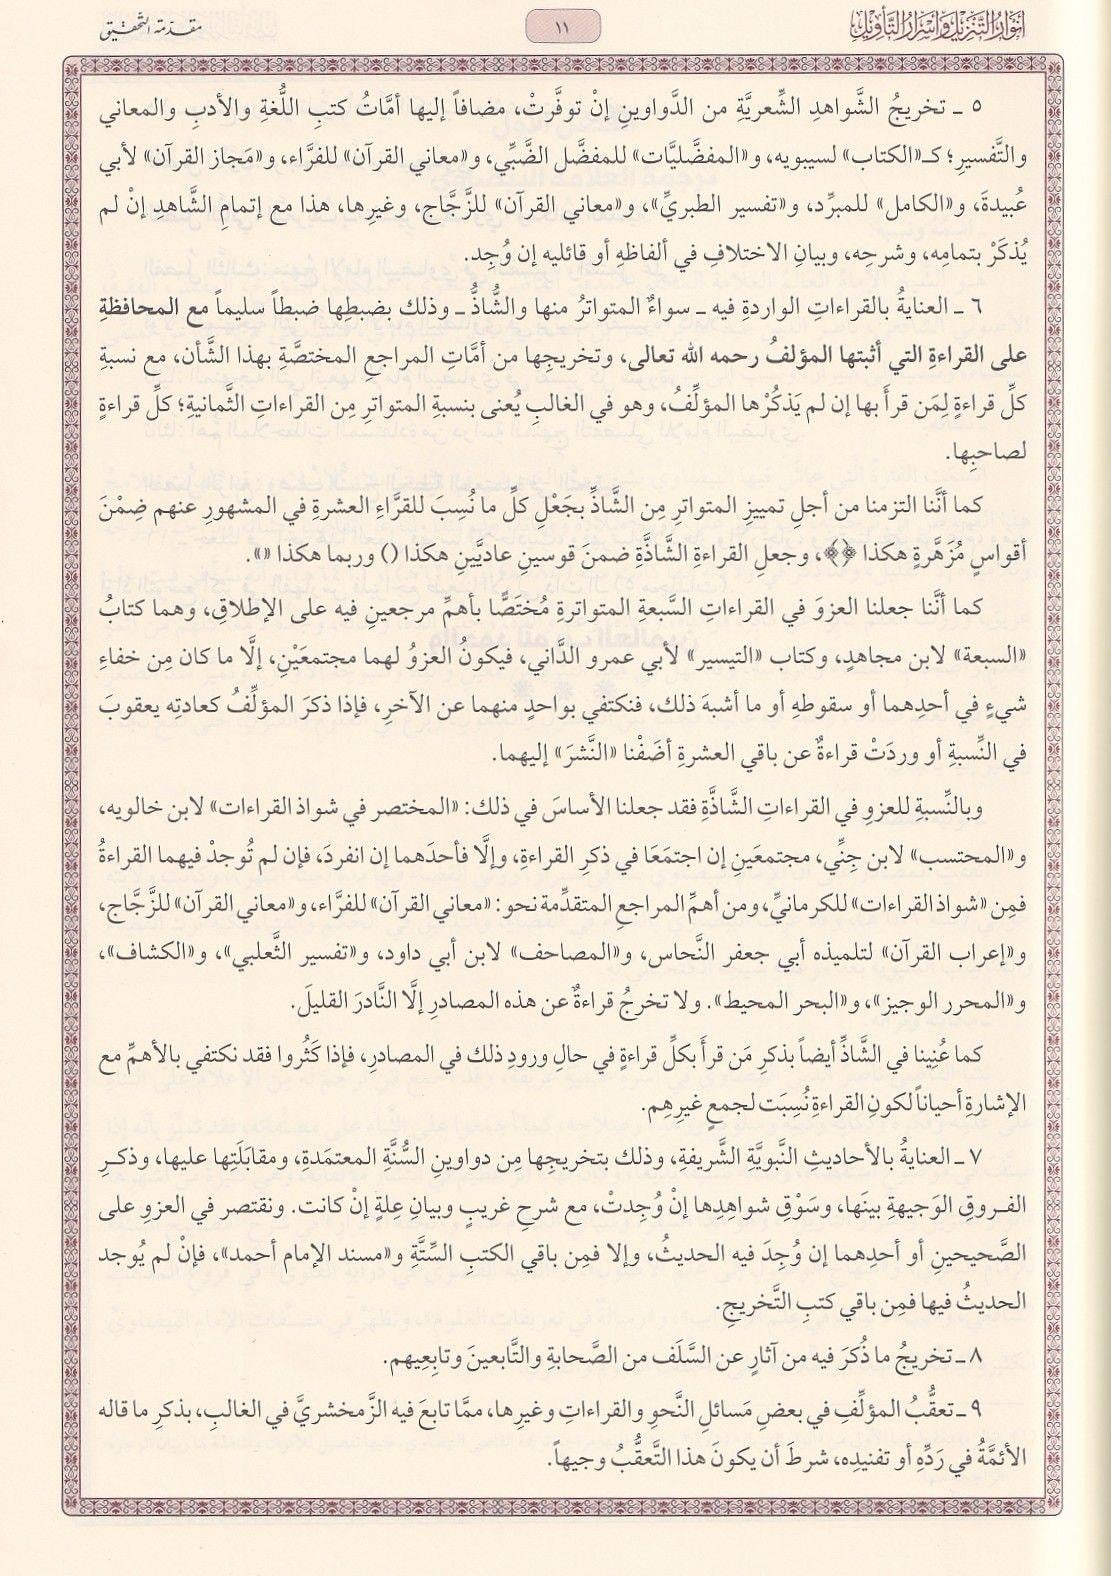 أنوار التنزيل وأسرار التأويل
١١
مقدمة التحقيق
٥ ـ تخريجُ الشَّواهدِ الشِّعريَّةِ من الدَّواوينِ إنْ توفَّرتْ، مضافاً إليها أمَّاتُ كتبِ اللُّغةِ والأدبِ والمعاني
والتَّفسيرِ؛ كـ«الكتاب» لسيبويه، و«المفضَّليَّات» للمفضَّل الضَّبِّي، و«معاني القرآن» للفرَّاء، و«مَجاز القرآن» لأبي
عُبيدةَ، و«الكامل» للمبرِّد، و«تفسير الطبريِّ»، و«معاني القرآن» للزَّجَّاج، وغيرِها، هذا مع إتمامِ الشَّاهدِ إنْ لم
يُذكَرْ بتمامِه، وشرحِه، وبيانِ الاختلافِ في ألفاظهِ أو قائليه إن وُجِد.
٦ ـ العنايةُ بالقراءاتِ الواردةِ فيه ـ سواءٌ المتواترُ منها والشَّاذُّ ـ وذلك بضبطِها ضبطاً سليماً مع المحافظةِ
على القراءةِ التي أثبتها المؤلفُ رحمه الله تعالى، وتخريجِها من أمَّاتِ المراجعِ المختصَّةِ بهذا الشَّأن، مع نسبةِ
كلِّ قراءةٍ لِمَن قرأَ بها إن لم يَذكُرْها المؤلِّفُ، وهو في الغالبِ يُعنى بنسبةِ المتواترِ مِن القراءاتِ الثَّمانيةِ؛ كلِّ قراءةٍ
لصاحبِها.
كما أنَّنا التزمنا من أجلِ تمييزِ المتواترِ مِن الشَّاذِّ بجَعْلِ كلِّ ما نُسِبَ للقرَّاءِ العشرةِ في المشهورِ عنهم ضِمْنَ
أقواسٍ مُزَهَّرةٍ هكذا ﴿﴾، وجعلِ القراءةِ الشَّاذَّةِ ضمنَ قوسينِ عاديَّينِ هكذا () وربما هكذا «».
كما أنَّنا جعلنا العزوَ في القراءاتِ السَّبعةِ المتواترةِ مُختَصًّا بأهمِّ مرجعينِ فيه على الإطلاقِ، وهما كتابُ
«السبعة» لابن مجاهدٍ، وكتاب «التيسير» لأبي عمرو الدَّاني، فيكونُ العزوُ لهما مجتمعَيْنِ، إلَّا ما كان مِن خفاءِ
شيءٍ في أحدِهما أو سقوطهِ أو ما أشبهَ ذلك، فنكتفي بواحدٍ منهما عن الآخرِ، فإذا ذكرَ المؤلِّفُ كعادتِه يعقوبَ
في النِّسبةِ أو وردَتْ قراءةٌ عن باقي العشرةِ أضَفْنا «النَّشرَ» إليهما.
وبالنِّسبةِ للعزوِ في القراءاتِ الشَّاذَّةِ فقد جعلنا الأساسَ في ذلك: «المختصر في شواذ القراءات» لابن خالويه،
و«المحتسب» لابن جِنِّي، مجتمعَينِ إن اجتمَعَا في ذكرِ القراءةِ، وإلَّا فأحدَهما إن انفردَ، فإن لم تُوجدْ فيهما القراءةُ
فمِن «شواذ القراءات» للكرمانيِّ، ومن أهمِّ المراجعِ المتقدِّمة نحو: «معاني القرآن» للفرَّاء، و«معاني القرآن» للزَّجَّاج،
و«إعراب القرآن» لتلميذه أبي جعفر النَّحاس، و«المصاحف» لابن أبي داود، و«تفسير الثَّعلبي»، و«الكشاف»،
و«المحرر الوجيز»، و«البحر المحيط». ولا تخرجُ قراءةٌ عن هذه المصادرِ إلَّا النَّادرَ القليلَ.
كما عُنِينا في الشَّاذِّ أيضاً بذكرِ مَن قرأَ بكلِّ قراءةٍ في حالِ ورودِ ذلك في المصادرِ، فإذا كَثُروا فقد نكتفي بالأهمِّ مع
الإشارةِ أحياناً لكونِ القراءةِ نُسِبَت لجمعٍ غيرِهِم.
٧ ـ العنايةُ بالأحاديثِ النَّبويَّةِ الشَّريفةِ، وذلك بتخريجِها مِن دواوينِ السُّنَّةِ المعتمَدةِ، ومقابَلَتِها عليها، وذكرِ
الفروقِ الوَجيهةِ بينَها، وسَوْقِ شواهِدِها إنْ وُجِدتْ، مع شرحِ غريبٍ وبيانِ عِلةٍ إنْ كانت. ونقتصر في العزوِ على
الصَّحيحينِ أو أحدِهما إن وُجِدَ فيه الحديثُ، وإلا فمِن باقي الكتبِ السِّتَّةِ و«مسند الإمام أحمد»، فإنْ لم يُوجد
الحديثُ فيها فمِن باقي كتبِ التَّخريجِ.
٨ ـ تخريجُ ما ذُكرَ فيه من آثارٍ عن السَّلَف من الصَّحابةِ والتَّابعينَ وتابِعِيهم.
٩ ـ تعقُّبُ المؤلِّفِ في بعضِ مَسائلِ النَّحوِ والقراءاتِ وغيرِها، ممَّا تابعَ فيه الزَّمخشريَّ في الغالبِ، بذكرِ ما قاله
الأئمَّةُ في رَدِّهِ أو تفنيدِه، شرطَ أن يكونَ هذا التَّعقُّبُ وجيهاً.